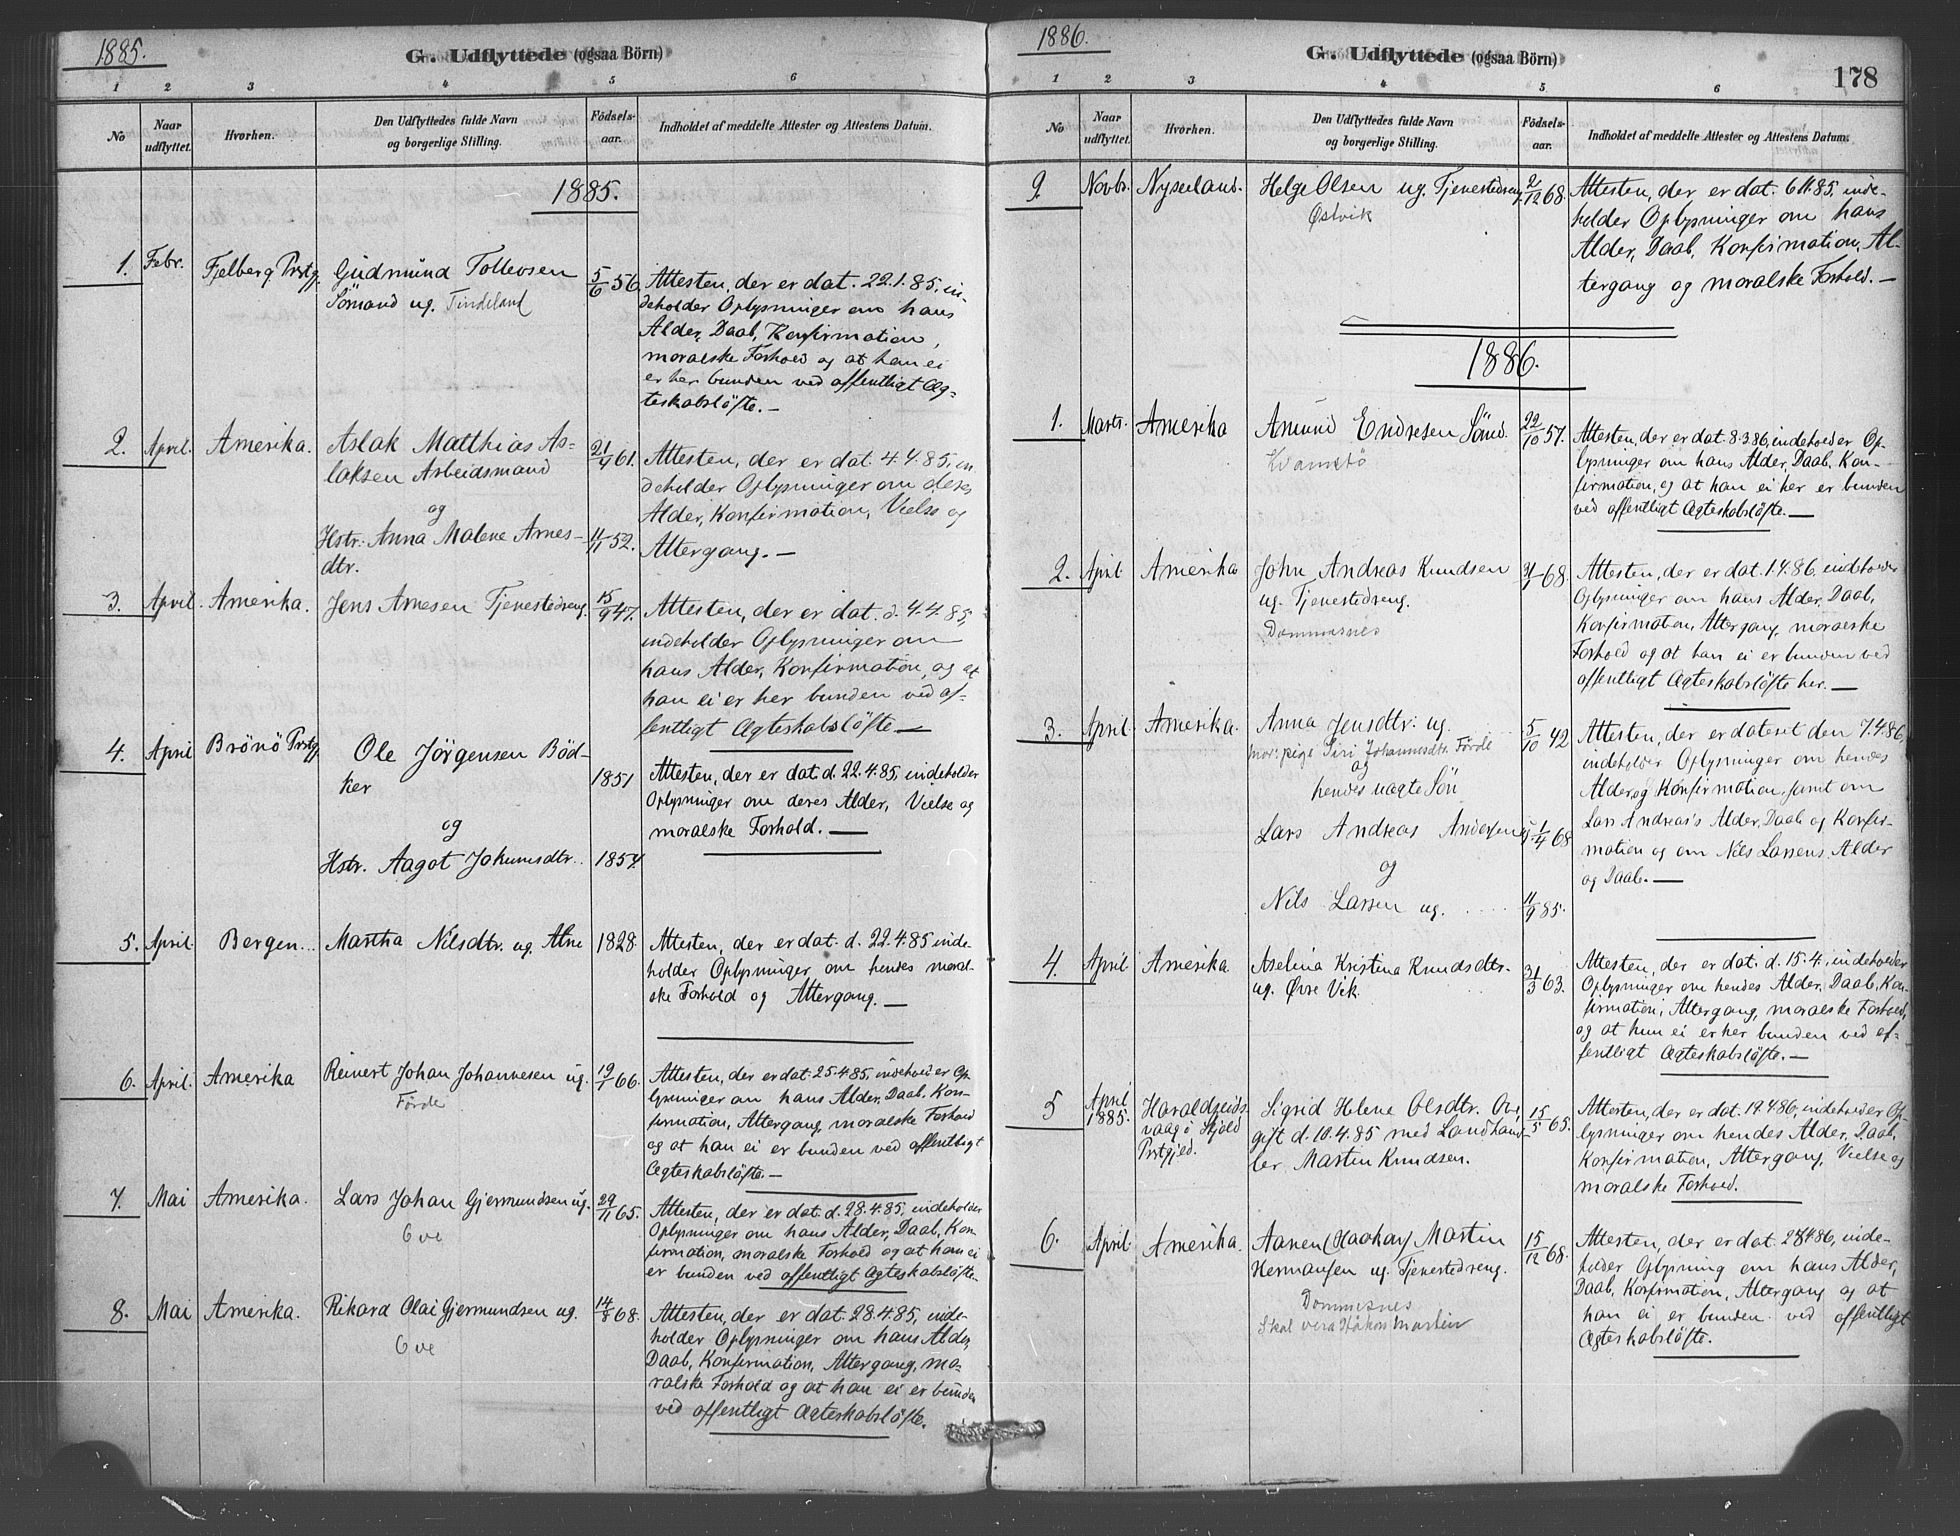 1885.
G. Udflyttede (ogsaa Börn)
1 2 3 4 5 6
No
Naar udflyttet.
Hvorhen.
Den Udflyttedes fulde Navn og borgerlige Stilling.
Födsels-aar.
Indholdet af meddelte Attester og Attestens Datum.
1885.
1. Febr. Fjelberg Prstgj. Gudmund Tollevsen 5/6 56.
Sømand ug. Tindeland
Attesten, der er dat. 22.1.85, in-
deholder Oplysninger om hans
Alder, Daab, Konfirmation,
moralske Forhold og at han ei
er her bunden ved offentligt Æg-
teskabsløfte. —
2. April. Amerika. Aslak Matthias As- 21/9 61.
laksen Arbeidsmand
og
Hstr. Anna Malene Arnes- 11/11 52.
dtr.
Attesten, der er dat. 4.4.85, in
deholder Oplysninger om deres
Alder, Konfirmation, Vielse og
Altergang. —
3. April. Amerika. Jens Arnesen Tjenestedreng. 15/9 47.
Attesten, der er dat. d. 4.4.85,
indeholder Oplysninger om
hans Alder, Konfirmation, og at
han ei er her bunden ved of-
fentligt Ægteskabsløfte. —
4. April Brönö Prstgj. Ole Jörgensen Böd- 1851
ker
og
Hstr. Aagot Johannesdtr. 1854
Attesten, der er dat. d. 22.4.85, indeholder
Oplysninger om deres Alder, Vielse og
moralske Forhold. —
5. April. Bergen... Martha Nilsdtr. ug. Alne 1828.
Attesten, der er dat. d. 22.4.85 inde-
holder Oplysninger om hendes moral-
ske Forhold og Altergang. —
6. April. Amerika Reinert Johan Johannesen ug. 19/1 66.
Förde
Attesten, der er dat. 25.4.85, indeholder Op-
lysninger om hans Alder, Daab, Kon-
firmation, Altergang, moralske Forhold
og at han ei er bunden ved offentligt
Ægteskabsløfte. —
7. Mai Amerika. Lars Johan Gjermundsen ug. 29/11 65.
Eve
Attesten, der er dat. d. 28.4.85, indeholder
Oplysninger om hans Alder, Daab, Kon-
firmation, moralske Forhold og at han ei
er bunden ved offentligt Ægteskabsløfte.
8. Mai Amerika. Rikard Olai Gjermundsen ug. 14/8 68.
Eve
Attesten, der er dat. 28.4.85, inde-
holder Oplysninger om hans Alder,
Daab, Konfirmation, Altergang, mo-
ralske Forhold og at han ei er bunden
ved offentligt Ægteskabsløfte.
1886.
G. Udflyttede (ogsaa Börn)
178
1 2 3 4 5 6
No
Naar udflyttet.
Hvorhen.
Den Udflyttedes fulde Navn og borgerlige Stilling.
Födsels-aar.
Indholdet af meddelte Attester og Attestens Datum.
9. Novbr. Nyseeland. Helge Olsen ug. Tjenestedreng. 2/12 68.
Østvik
Attesten, der er dat. 6.11.85, inde-
holder Oplysninger om hans
Alder, Daab, Konfirmation, Al-
tergang og moralske Forhold. —
1886.
1. Marts. Amerika Amund Endresen Sömd. 22/10 57.
Kvamstø
Attesten, der er dat. 8.3.86, indeholder Op-
lysninger om hans Alder, Daab, Kon-
firmation, og at han ei her er bunden
ved offentligt Ægteskabsløfte. —
2. April. Amerika John Andreas Knudsen 21/1 68.
ug. Tjenestedreng.
Dommesnes
Attesten, der er dat. 1.4.86, indeholder
Oplysninger om hans Alder, Daab,
Konfirmation, Altergang, moralske
Forhold og at han ei er bunden ved
offentligt Ægteskabsløfte her. —
3. April. Amerika. Anna Jensdtr. ug. 5/10 42
mor: pige Siri Johannesdtr. Förde
og
hendes uægte Sön
Lars Andreas Andersen 1/4 68
og
Nils Larsen ug. .... 11/9 85.
Attesten, der er dateret den 7.4.86,
indeholder Oplysninger om hendes
Alder, og Konfirmation, samt om
Lars Andreas's Alder, Daab og Konfir-
mation og om Nils Larsens Alder
og Daab. —
4. April Amerika Aselina Kristina Knudsdtr. 31/3 63.
ug. Øvre Vik.
Attesten, der er dat. d. 15.4, indeholder
Oplysninger om hendes Alder, Daab, Kon-
firmation, Altergang, moralske Forhold,
og at hun ei er her bunden ved of-
fentligt Ægteskabsløfte. —
5 April 1885. Haraldseids- Sigrid Helene Olsdtr. 15/5 65.
vaag i Skjold gift d. 10.4.85 med Landhand-
Prstgjed. ler, Martin Knudsen.
Attesten, der er dat. 19.4.86, indeholder Op-
lysninger om hendes Alder, Daab,
Konfirmation, Altergang, Vielse og
moralske Forhold.
6. April. Amerika. Aanen (Haakon) Martin 15/12 68.
Hermansen ug. Tjenestedreng.
Dommesnes
Skal vera Håkon Martin
Attesten, der er dat. 28.4.86, inde-
holder Oplysning om hans Alder,
Daab, Konfirmation, Altergang og at
han ei er bunden ved offentligt
Ægteskabsløfte.